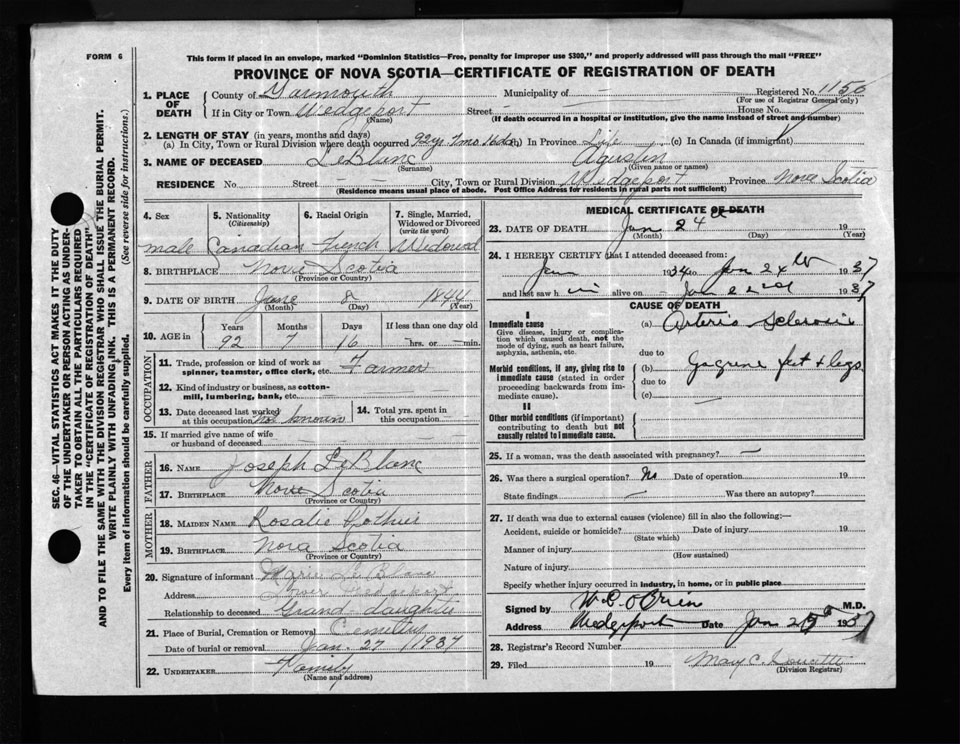 FORM 6
This form if placed in an envelope, marked "Dominion Statistics—Free, penalty for improper use $300," and properly addressed will pass through the mail "FREE"
PROVINCE OF NOVA SCOTIA—CERTIFICATE OF REGISTRATION OF DEATH
1. PLACE OF DEATH County of Yarmouth Municipality of — Registered No. 1156
(For use of Registrar General only)
If in City or Town Wedgeport Street — House No.
(Name) (If death occurred in a hospital or institution, give the name instead of street and number)
2. LENGTH OF STAY (in years, months and days)
(a) In City, Town or Rural Division where death occurred 92ys 7mo 16da (b) In Province Life (c) In Canada (if immigrant)
3. NAME OF DECEASED LeBlanc Agustin
(Surname) (Given name or names)
RESIDENCE No. Street — City, Town or Rural Division Wedgeport Province Nova Scotia
(Residence means usual place of abode. Post Office Address for residents in rural parts not sufficient)
4. Sex 5. Nationality (Citizenship) 6. Racial Origin 7. Single, Married, Widowed or Divorced (write the word)
male Canadian French Widowed
8. BIRTHPLACE Nova Scotia
(Province or Country)
9. DATE OF BIRTH June 8 1844
(Month) (Day) (Year)
10. AGE in Years Months Days If less than one day old
92 7 16 hrs. or min.
OCCUPATION
11. Trade, profession or kind of work as spinner, teamster, office clerk, etc. Farmer
12. Kind of industry or business, as cotton-mill, lumbering, bank, etc.
13. Date deceased last worked at this occupation Not known 14. Total yrs. spent in this occupation
15. If married give name of wife or husband of deceased
FATHER
16. NAME Joseph LeBlanc
17. BIRTHPLACE Nova Scotia
(Province or Country)
MOTHER
18. MAIDEN NAME Rosalie Pothier
19. BIRTHPLACE Nova Scotia
(Province or Country)
20. Signature of informant Marie LeBlanc
Address
Relationship to deceased Grand daughter
21. Place of Burial, Cremation or Removal Cemetery
Date of burial or removal Jan. 27 1937
22. UNDERTAKER Family
(Name and address)
MEDICAL CERTIFICATE OF DEATH
23. DATE OF DEATH Jan 24 19
(Month) (Day) (Year)
24. I HEREBY CERTIFY that I attended deceased from:
Jan 1934 to Jan 24th 1937
and last saw h im alive on Jan 1937
CAUSE OF DEATH
I
Immediate cause
Give disease, injury or complication which caused death, not the mode of dying, such as heart failure, asphyxia, asthenia, etc.
(a) Arterio Sclerosis
due to
Morbid conditions, if any, giving rise to immediate cause (stated in order proceeding backwards from immediate cause).
(b) Gagrene feet + legs
due to
(c) —
II
Other morbid conditions (if important) contributing to death but not causally related to immediate cause.
25. If a woman, was the death associated with pregnancy? —
26. Was there a surgical operation? No Date of operation 19
State findings — Was there an autopsy?
27. If death was due to external causes (violence) fill in also the following:—
Accident, suicide or homicide? Date of injury 19
(State which)
Manner of injury
(How sustained)
Nature of injury
Specify whether injury occurred in industry, in home, or in public place
Signed by W C O'Brien M.D.
Address Wedgeport Date Jan 25th 1937
28. Registrar's Record Number
29. Filed 19 Mary C.
(Division Registrar)
SEC. 46—VITAL STATISTICS ACT MAKES IT THE DUTY
OF THE UNDERTAKER OR PERSON ACTING AS UNDER-
TAKER TO OBTAIN ALL THE PARTICULARS REQUIRED
IN THE "CERTIFICATE OF REGISTRATION OF DEATH"
AND TO FILE THE SAME WITH THE DIVISION REGISTRAR WHO SHALL ISSUE THE BURIAL PERMIT.
WRITE PLAINLY WITH UNFADING INK. THIS IS A PERMANENT RECORD.
Every item of information should be carefully supplied. (See reverse side for instructions.)